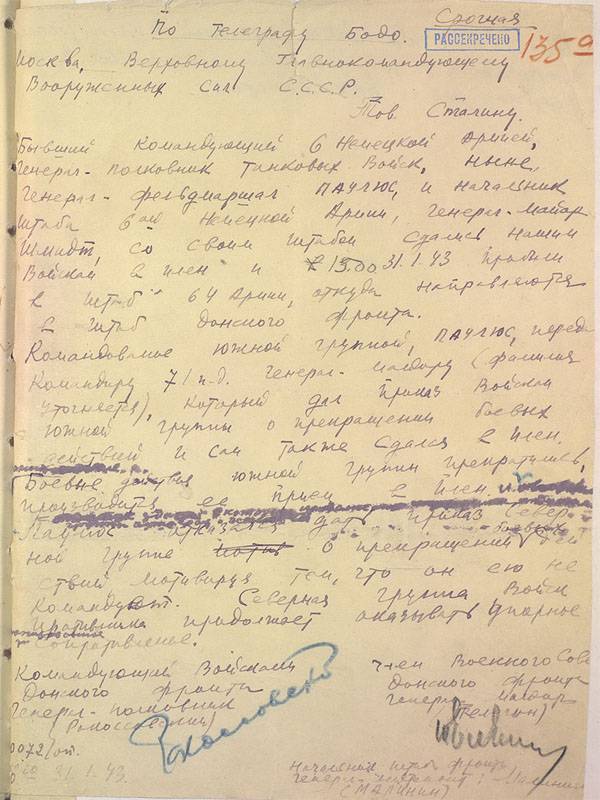 Срочная
По Телеграфу Бодо.
РАССЕКРЕЧЕНО
135
Москва, Верховному Главнокомандующему
Вооруженных Сил С.С.С.Р.
Тов. Сталину.
Бывший Командующий 6 Немецкой Армией,
Генерал-полковник танковых войск, ныне,
Генерал-фельдмаршал ПАУЛЮС, и начальник
штаба 6ой Немецкой Армии, Генерал-майор
Шмидт, со своим штабом сдались нашим
Войскам в плен и к 15.00 31.1.43 прибыли
в штаб 64 Армии, откуда направляются
в штаб Донского фронта.
Командование южной группой, ПАУЛЮС, переда
Командиру 71 п.д. Генерал-майору (фамилия
уточняется), который дал приказ Войскам
южной группы о прекращении боевых
действий и сам также сдался в плен.
Боевые действия южной группы прекратились,
производится ее прием в плен.
Паулюс отказался дать приказ Север-
ной группе о прекращении боевых дей
ствий мотивируя тем, что он ею не
Командует. Северная группа Войск
противника продолжает оказывать упорное
сопротивление.
Командующий Войсками
Донского фронта
Генерал-полковник
(Рокоссовский)
Рокоссовский
Член Военного Сове
Донского фронта
Генерал майор
(Телегин)
0072/оп.
31.1.43
Начальник штаба фронта
Генерал-лейтенант: Малинин
(МАЛИНИН)